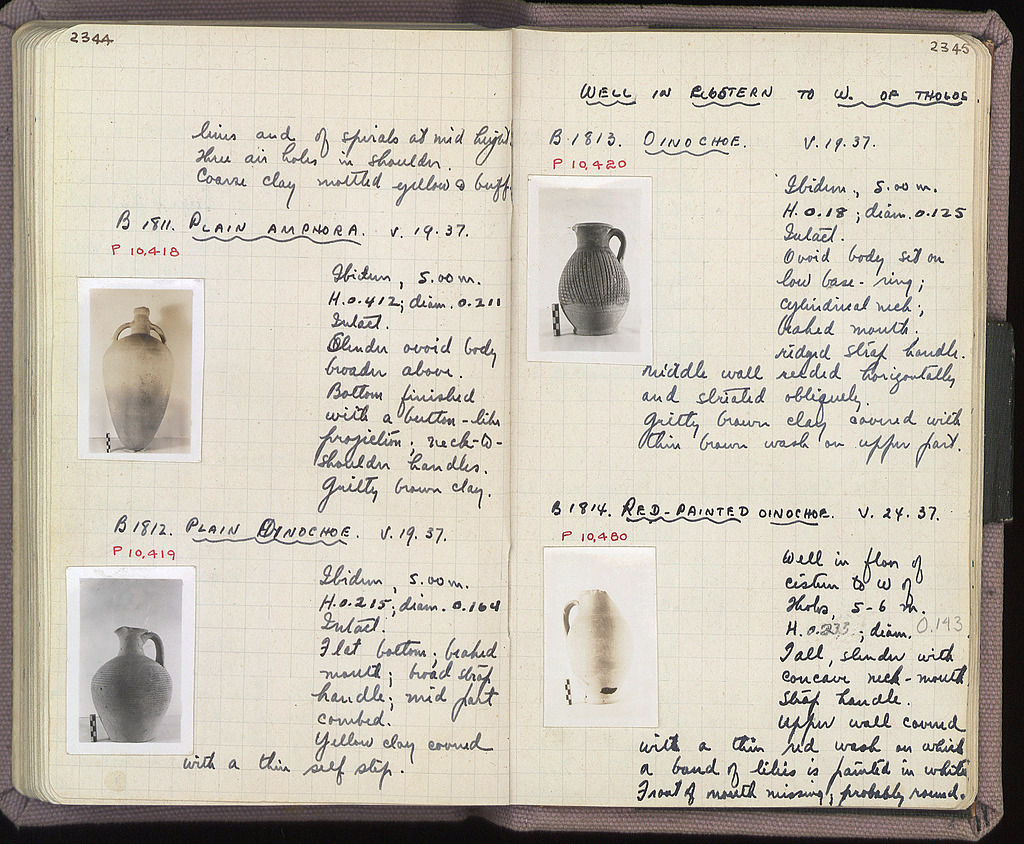 2344
lines and of spirals at mid height.
Three air holes in shoulder.
Coarse clay mottled yellow & buff.
B 1811. PLAIN AMPHORA. V. 19.37.
P 10,418
Ibidem, 5.00 m.
H. 0.412; diam. 0.211
Intact.
Slender ovoid body
broader above.
Bottom finished
with a button-like
projection; neck-to-
shoulder handles.
Gritty brown clay.
B 1812. PLAIN OINOCHOE. V. 19.37.
P 10,419
Ibidem, 5.00 m.
H. 0.215; diam. 0.164
Intact.
Flat bottom; beaked
mouth; broad strap
handle; mid part
combed.
Yellow clay covered
with a thin self slip.
2345
WELL IN TO W. OF THOLOS
B 1813. OINOCHOE. V. 19.37.
P 10,420
Ibidem, 5.00 m.
H. 0.18; diam. 0.125
Intact.
Ovoid body set on
low base-ring;
cylindrical neck;
beaked mouth.
ridged strap handle.
Middle wall reeded horizontally
and striated obliquely.
Gritty brown clay covered with
thin brown wash on upper part.
B 1814. RED-PAINTED OINOCHOE. V. 24. 37.
P 10,480
Well in floor of
cistern to W of
Tholos, 5-6 m.
H. 0.233; diam. 0.143
Tall, slender with
concave neck-mouth
strap handle.
Upper wall covered
with a thin red wash on which
a band of lilies is painted in white
Front of mouth missing; probably round.